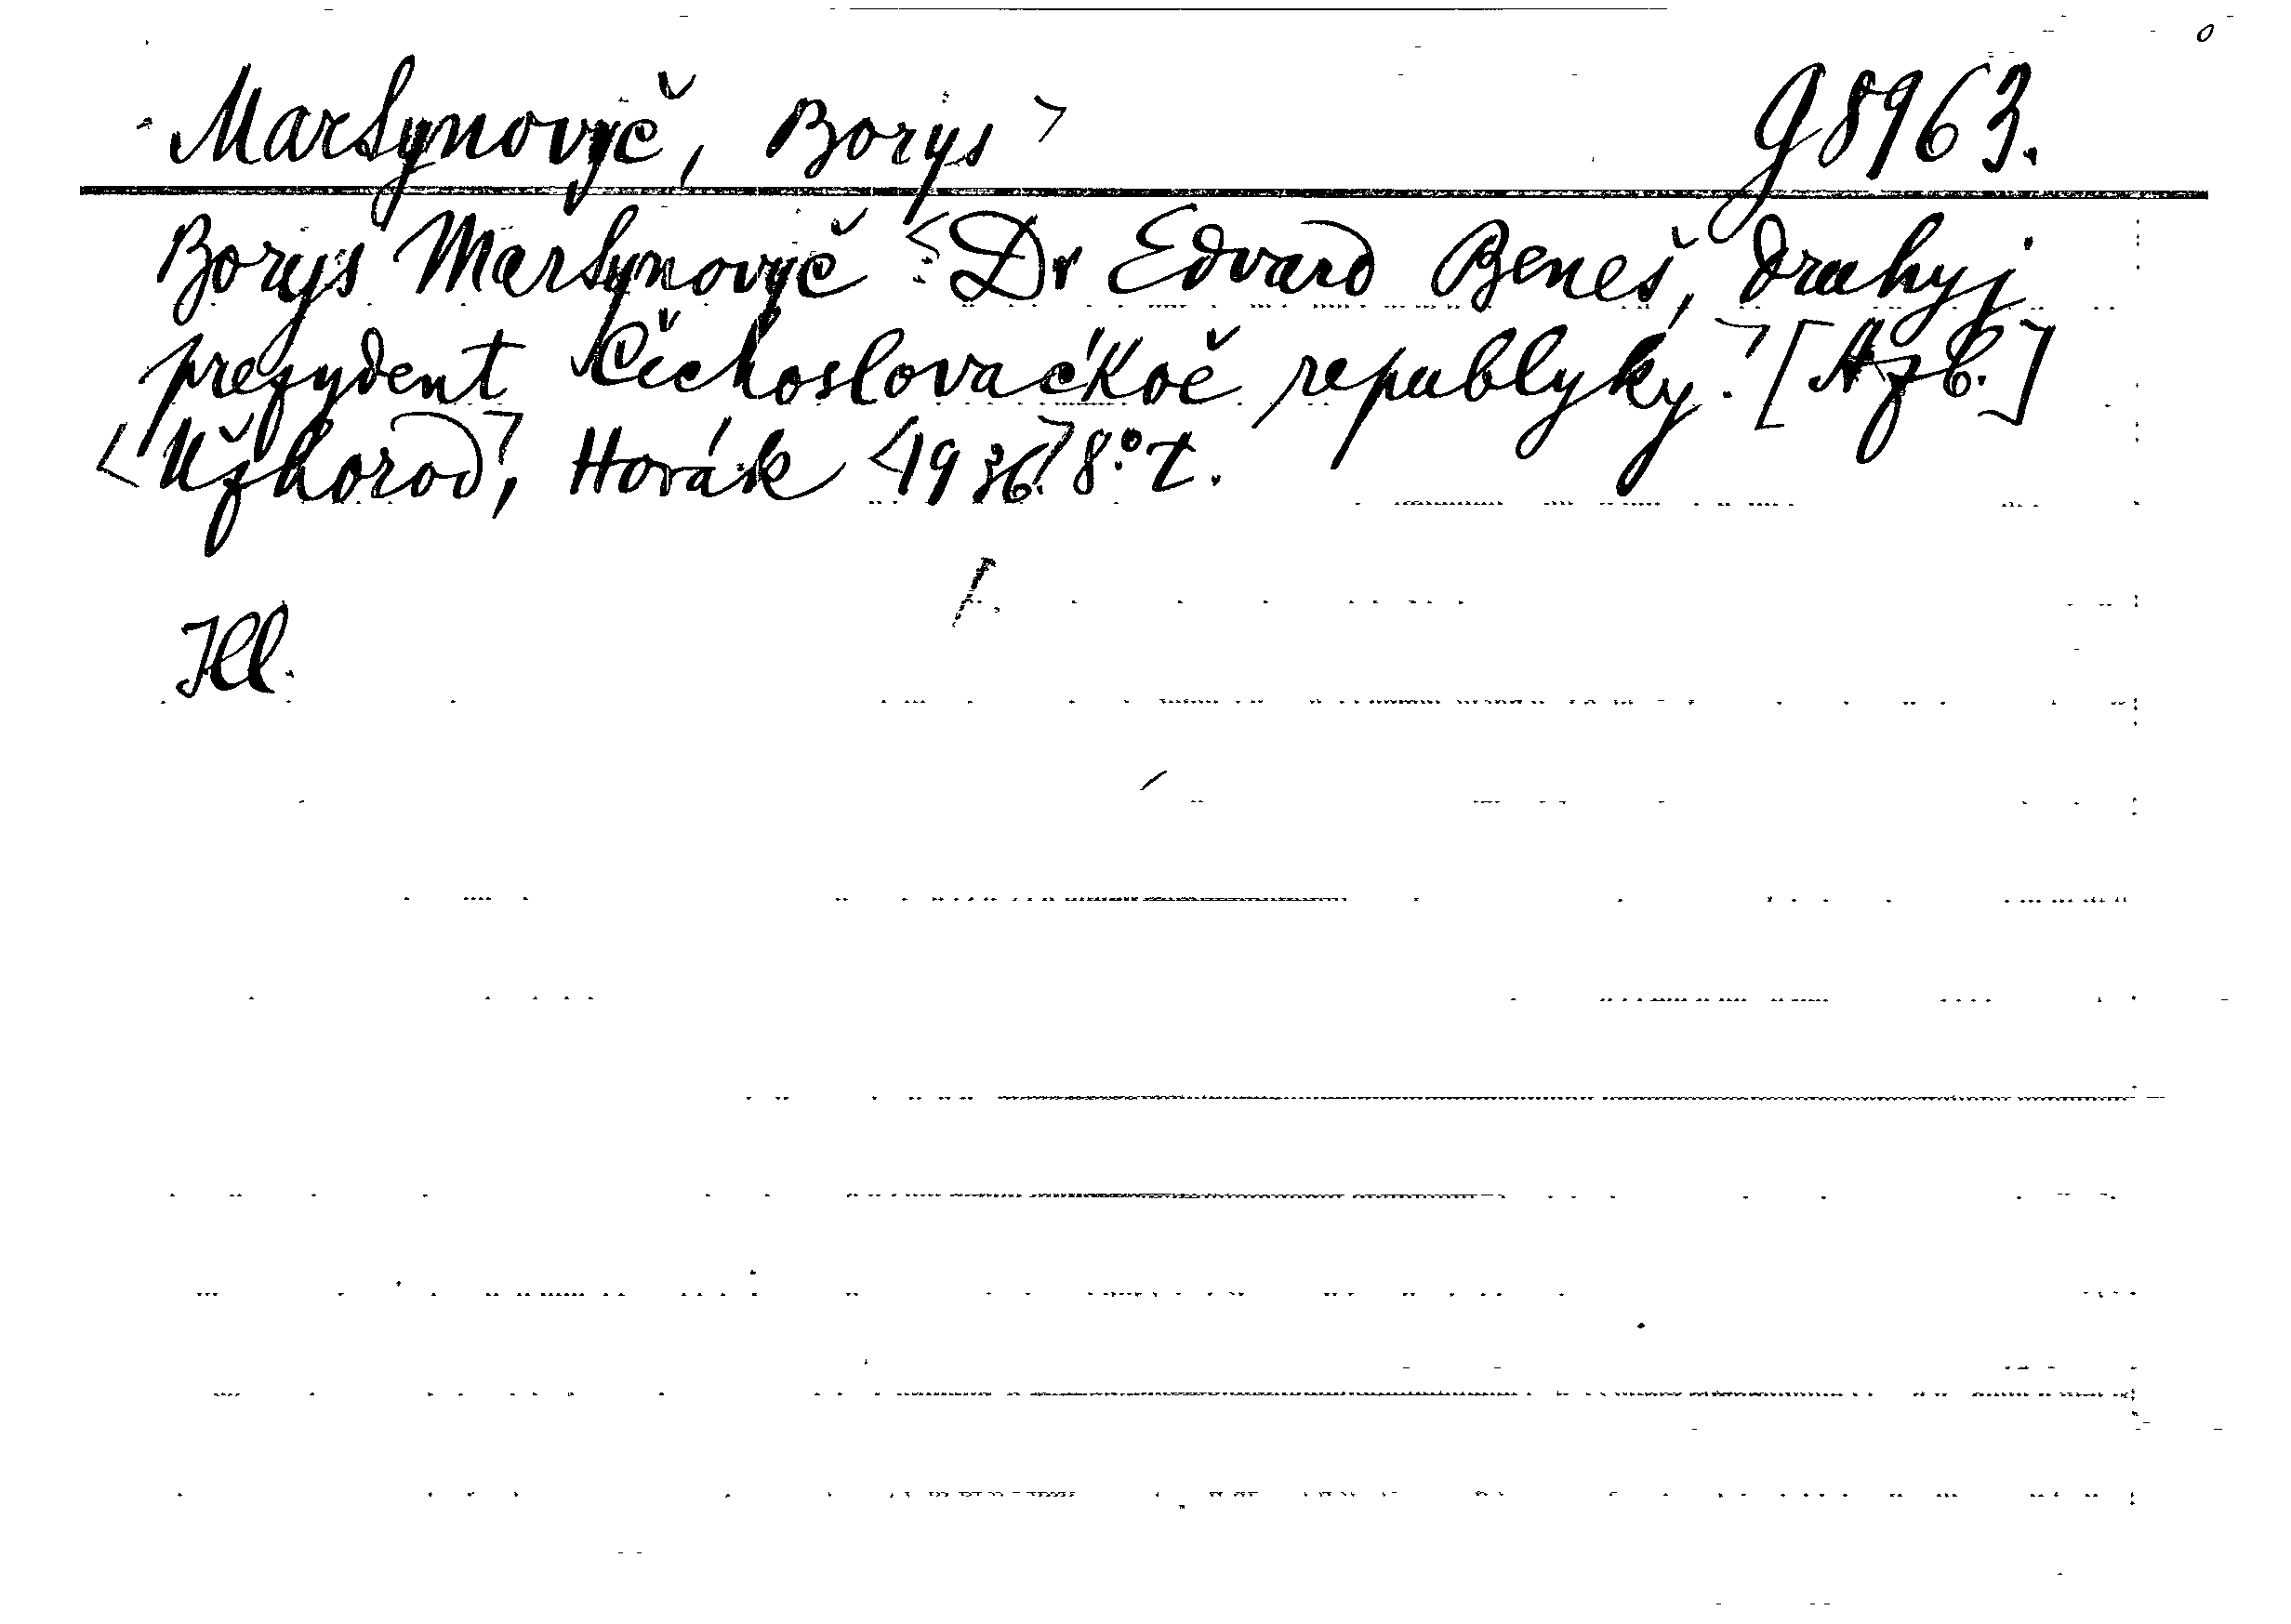 Martynovyč, Borys> G 8963.
Borys Martynovyč <Dr Edvard Beneš, druhyj
prezydent Čechoslovaćkoě republyky.> [Azb.]
<Užhorod>, Horák <1936.> 8° t.
Ill.